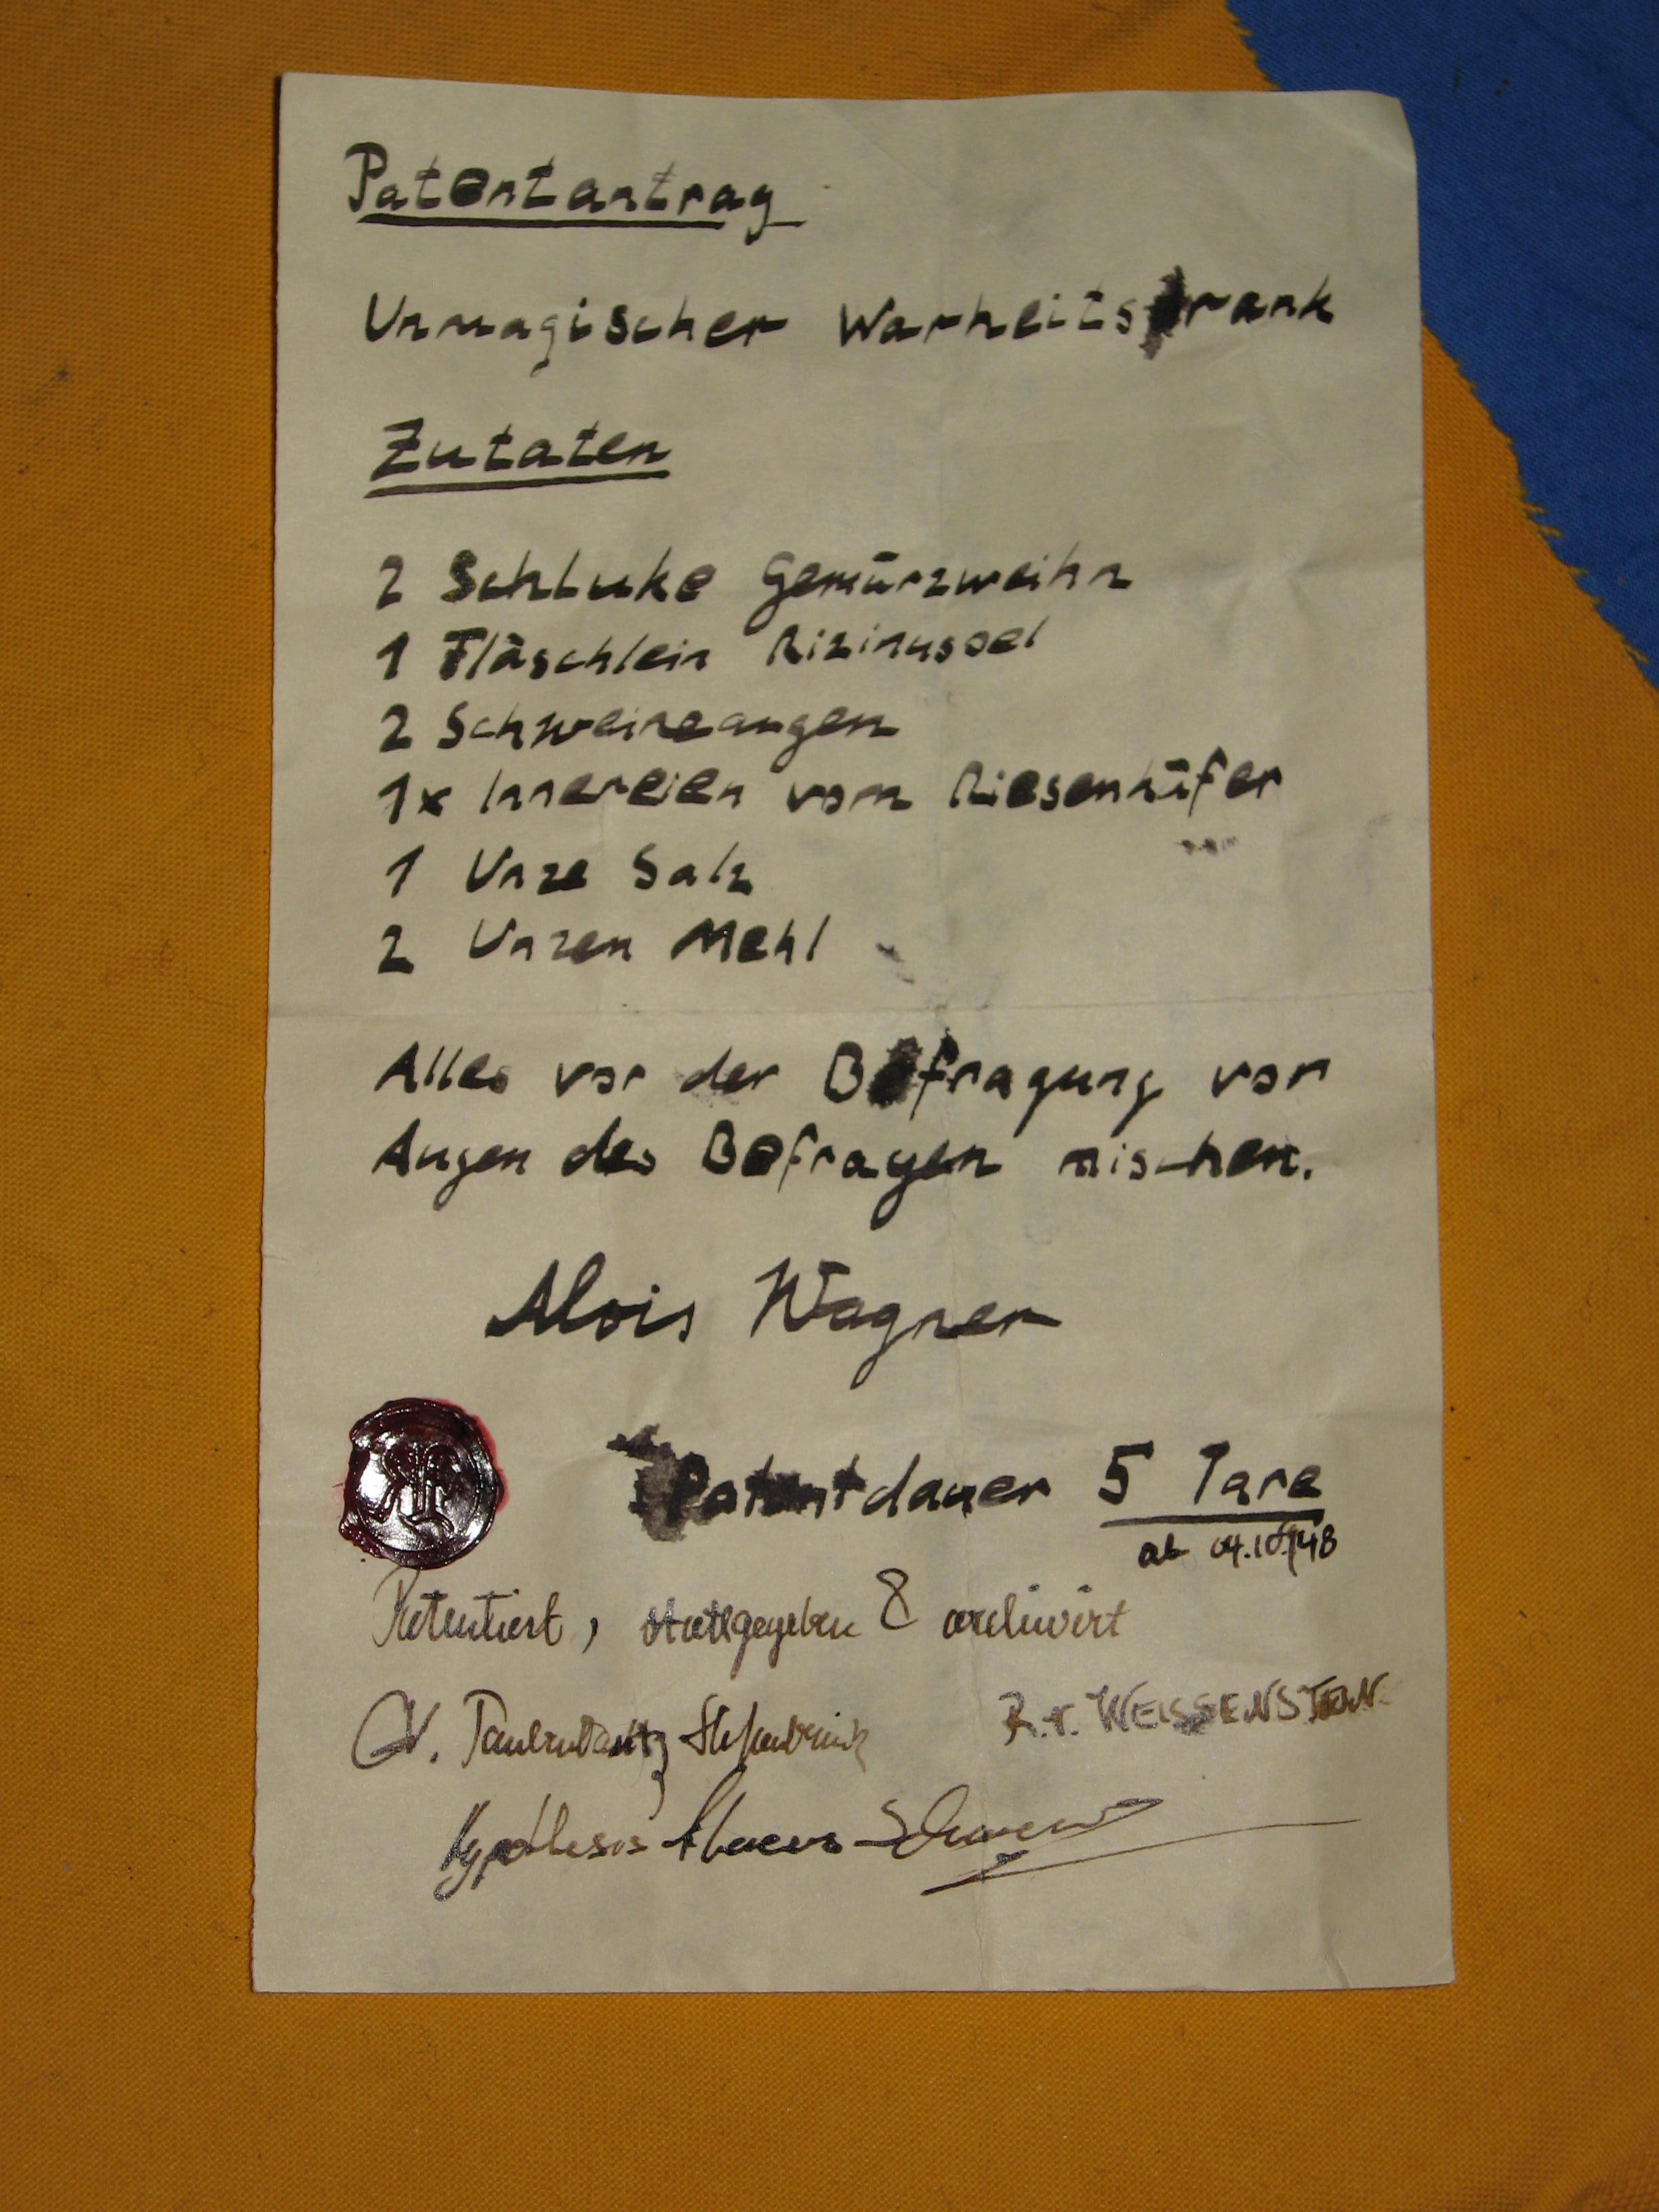 Patentantrag
Unmagischer Warheitstrank
Zutaten
2 Schluke Gewürzweihn
1 Fläschlein Rizinussöl
2 Schweineaugen
1x Innereien vom Riesenkäfer
1 Unze Salz
2 Unzen Mehl
Alles vor der Befragung vor
Augen des Befragen mischen.
Alois Wagner
Patentdauer 5 Tare
ab
Patentiert, stattgegeben & archivirt
R.v. WEISSENSTEIN